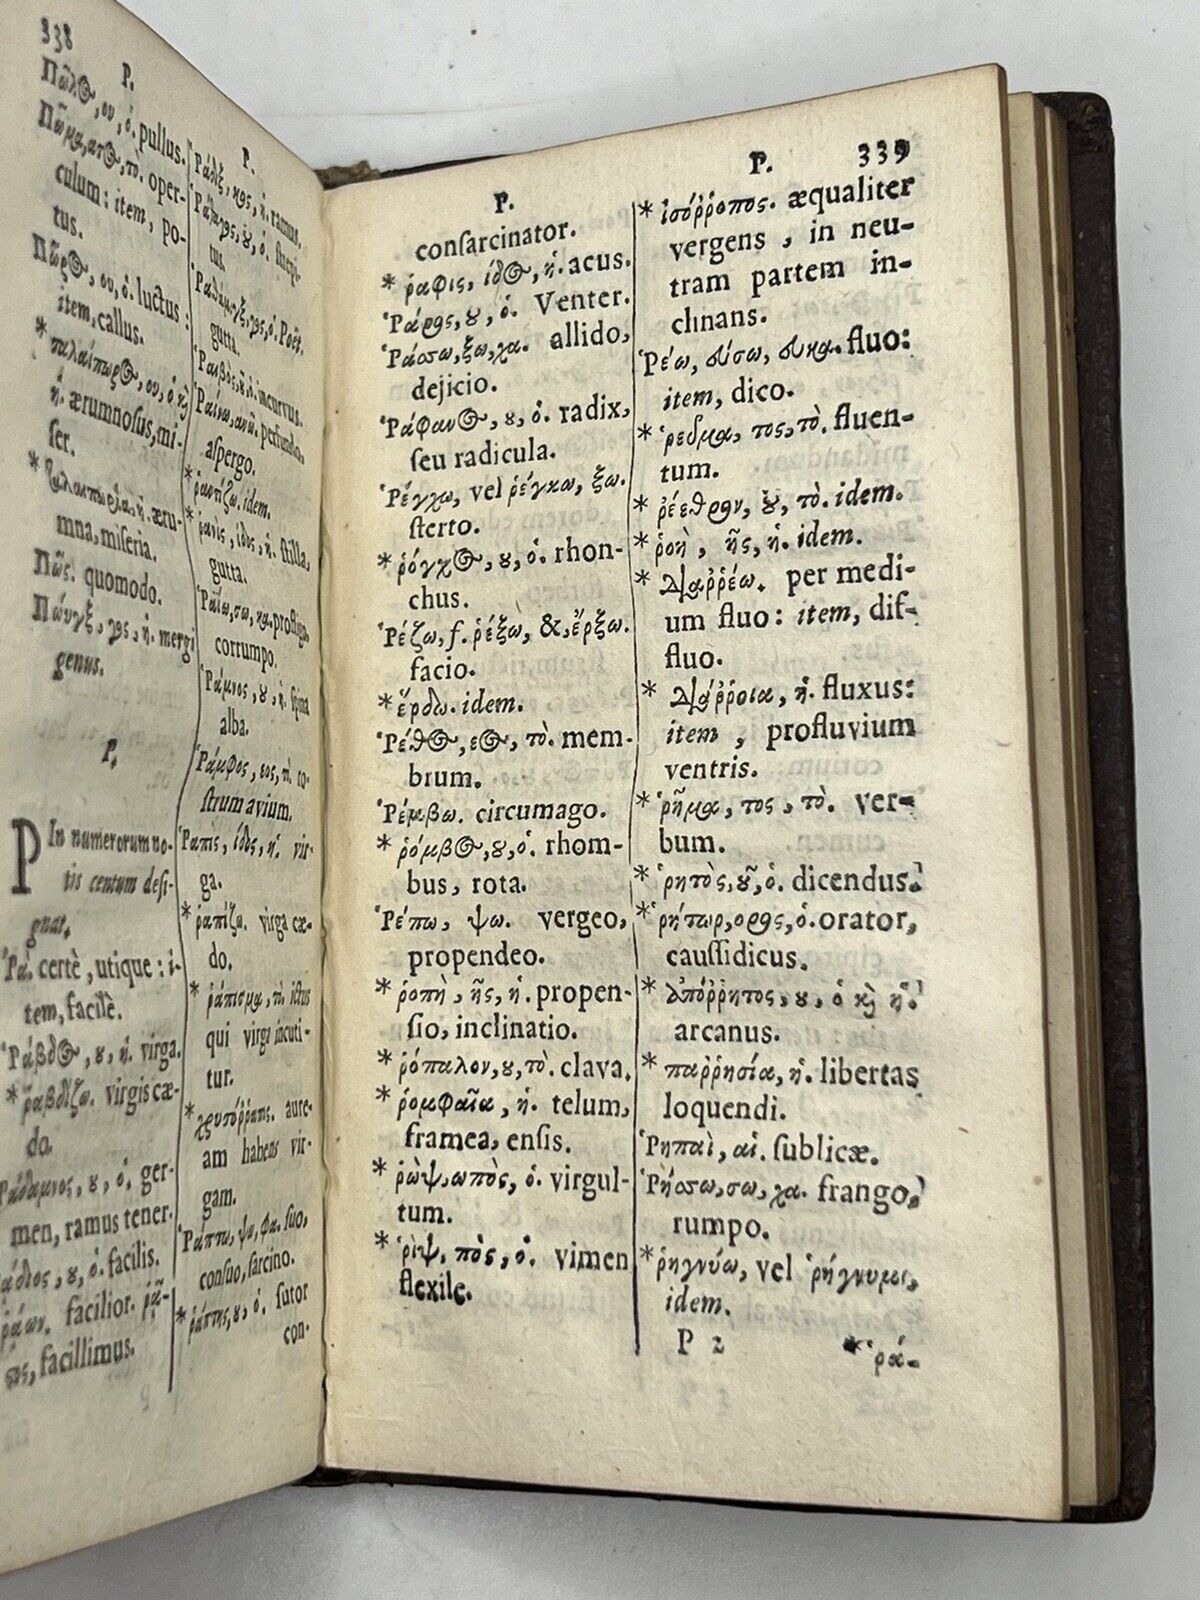 338
P.
Πῶλος, ου, ὁ. pullus.
Πῶμα, ατος, τὸ. oper-
culum: item, po-
tus.
Πῶρος, ου, ὁ. luctus:
item, callus.
* ταλαίπωρος, ου, ὁ κỳ
ἡ. ærumnosus, mi-
ser.
* ταλαιπωρία, ἡ. æru-
mna, miseria.
Πῶς. quomodo.
Πώυγξ, γος, ἡ. mergi
genus.
P.
P In numerorum no-
tis centum desi-
gnat.
Ῥά. certè, utique: i-
tem, facilè.
Ῥάβδος, ȣ, ἡ. virga.
* ῥαβδίζω. virgis cæ-
do.
Ῥάδαμνος, ȣ, ὁ. ger-
men, ramus tener.
ῥάδιος, ȣ, ὁ. facilis.
ῥάων. facilior. ῥᾷ-
στος, facillimus.
P.
Ῥάδιξ, κος, ἡ. ramus.
gutta.
Ῥαιβὸς, ȣ, ὁ. incurvus.
Ῥαίνω, ανῶ. perfundo,
aspergo.
* ῥαντίζω. idem.
* ῥανὶς, ίδος, ἡ. stilla,
gutta.
Ῥαίω, σω, κα. profligo,
corrumpo.
Ῥάμνος, ȣ, ἡ. spina
alba.
Ῥάμφος, εος, τὸ. ro-
strum avium.
Ῥαπὶς, ίδος, ἡ. vir-
ga.
* ῥαπίζω. virga cæ-
do.
* ῥάπισμα, τὸ. ictus
qui virga incuti-
tur.
* χρυσόῤῥαπις. aure-
am habens vir-
gam.
Ῥάπτω, ψω, φα. suo,
consuo, sarcino.
* ῥάπτης, ȣ, ὁ. sutor
con-
P.
consarcinator.
* ῥαφὶς, ίδος, ἡ. acus.
Ῥάρος, ȣ, ὁ. Venter.
Ῥάσσω, ξω, χα. allido,
dejicio.
Ῥάφανος, ȣ, ὁ. radix,
seu radicula.
Ῥέγχω, vel ῥέγκω, ξω.
sterto.
* ῥόγχος, ȣ, ὁ. rhon-
chus.
Ῥέζω, f. ῥέξω, &, ἔρξω.
facio.
* ἔρδω. idem.
Ῥέθος, εος, τὸ. mem-
brum.
Ῥέμβω. circumago.
* ῥόμβος, ȣ, ὁ. rhom-
bus, rota.
Ῥέπω, ψω. vergeo,
propendeo.
* ῥοπὴ, ῆς, ἡ. propen-
sio, inclinatio.
* ῥόπαλον, ȣ, τὸ. clava.
* ῥομφαῖα, ἡ. telum,
framea, ensis.
* ῥὼψ, ωπὸς, ὁ. virgul-
tum.
* ῥὶψ, πὸς, ὁ. vimen
flexile.
P. 339
* ἰσόῤῥοπος. æqualiter
vergens, in neu-
tram partem in-
clinans.
Ῥέω, εύσω, ευκα. fluo:
item, dico.
* ῥεῦμα, τος, τὸ. fluen-
tum.
* ῥέεθρον, ȣ, τὸ. idem.
* ῥοὴ, ῆς, ἡ. idem.
* Διαῤῥέω. per medi-
um fluo: item, dif-
fluo.
* Διάῤῥοια, ἡ. fluxus:
item, profluvium
ventris.
* ῥῆμα, τος, τὸ. ver-
bum.
* ῥητὸς, ȣ͂, ὁ. dicendus.
* ῥήτωρ, ορος, ὁ. orator,
caussidicus.
* ἀπόῤῥητος, ȣ, ὁ κỳ ἡ.
arcanus.
* παῤῥησία, ἡ. libertas
loquendi.
Ῥηπαὶ, αἱ. sublicæ.
Ῥήσσω, σω, χα. frango,
rumpo.
* ῥηγνύω, vel ῥήγνυμι,
idem.
P 2
* ῥά-